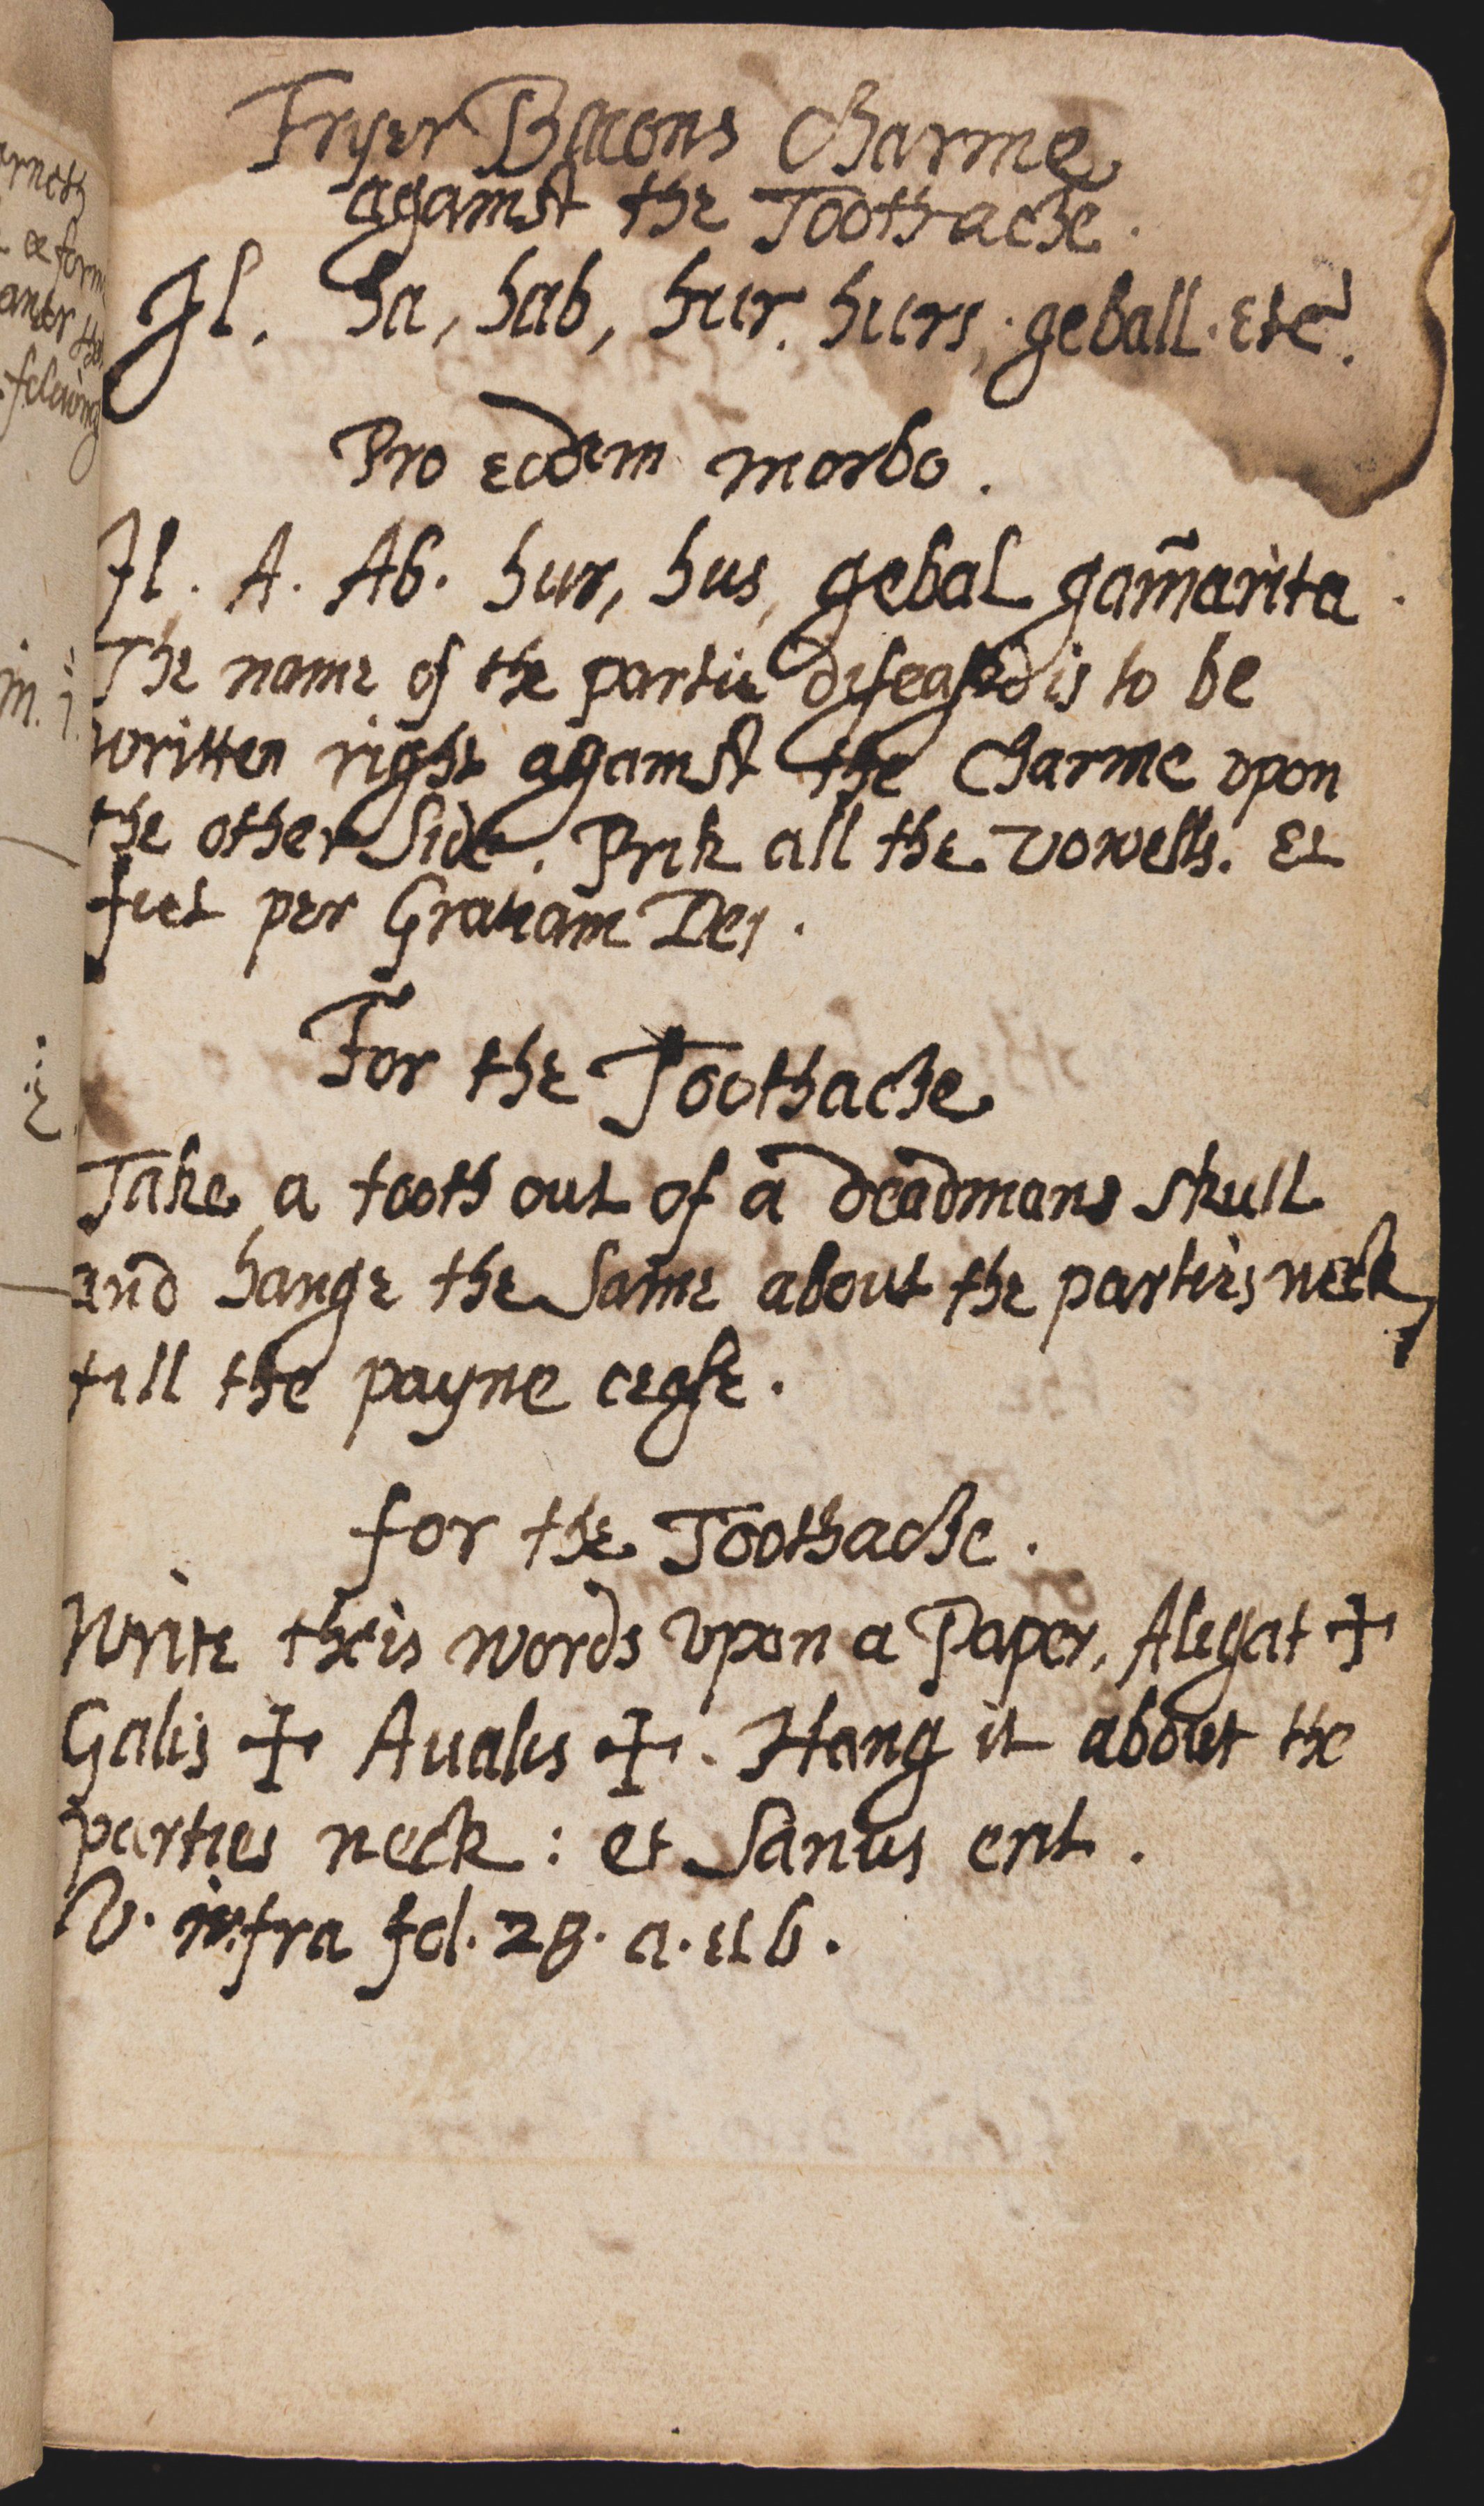 Fryer Bacons Charme
against the Toothache.
Jl. ha, hab, hur. hurs, geball. etc.
Pro eodem morbo.
Jl. A. Ab. hur, hus, gebal gam̃arita.
The name of the partie diseased is to be
written right against the Charme vpon
the other Side. Prik all the vowells. Et
fiet per Gratiam Dei.
For the Toothache
Take a tooth out of a deadmans skull
and hange the Same about the parties neck,
till the payne cease.
for the Toothache.
Write theis words vpon a Paper, Alegat ✝
Galis ✝ Aualis ✝. Hang it about the
parties neck: et Sanus erit.
V. infra fol. 28. a. et b.